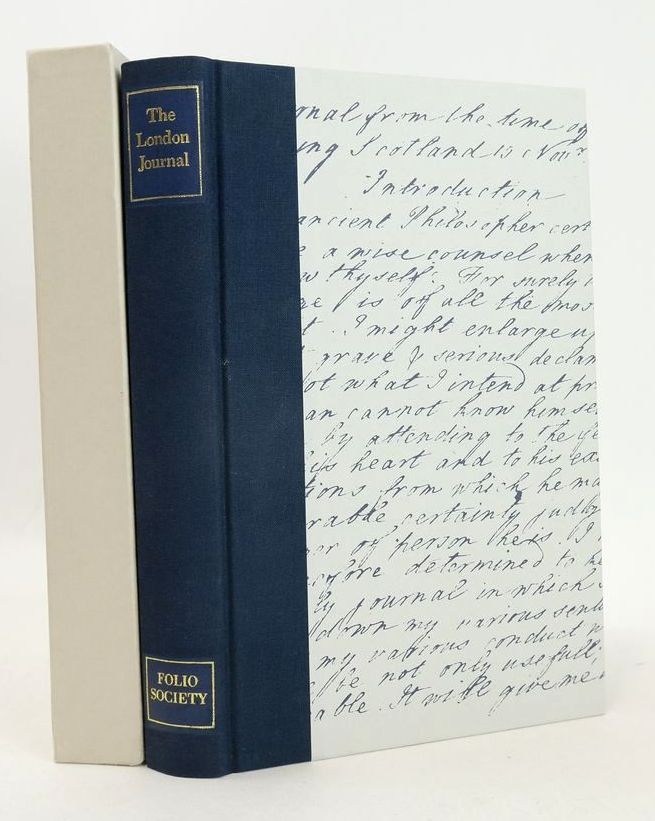 The
London
Journal
FOLIO
SOCIETY
nal from the time
ing Scotland 15 Novr.
Introduction
ancient Philosopher cert
a wise counsel when
thyself. For surely
is of all the mos
t. I might enlarge u
grave & serious declam
ot what I intend at pr
an cannot know himse
by attending to the fe
his heart and to his ex
tions from which he ma
rable certainty judge
of person he is. I
efore determined to ke
ly journal in which
down my various senti
my various conduct
be not only usefull
able. It will give me